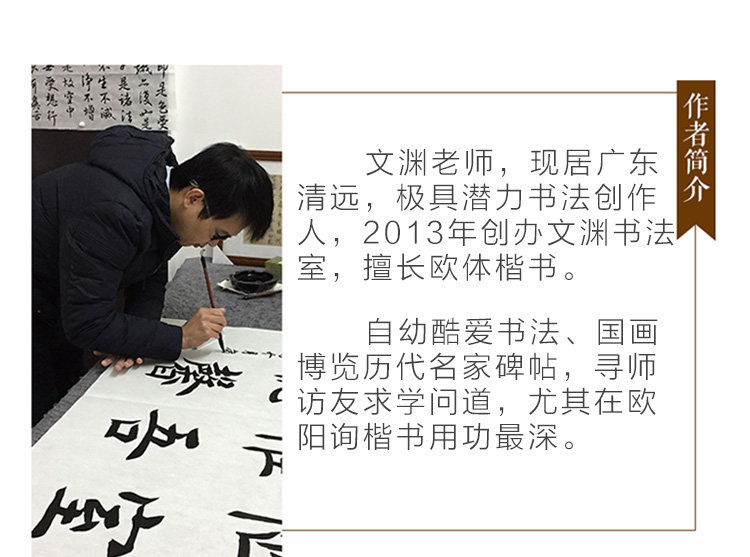 作者简介
文渊老师，现居广东
清远，极具潜力书法创作
人，2013年创办文渊书法
室，擅长欧体楷书。
自幼酷爱书法、国画
博览历代名家碑帖，寻师
访友求学问道，尤其在欧
阳询楷书用功最深。